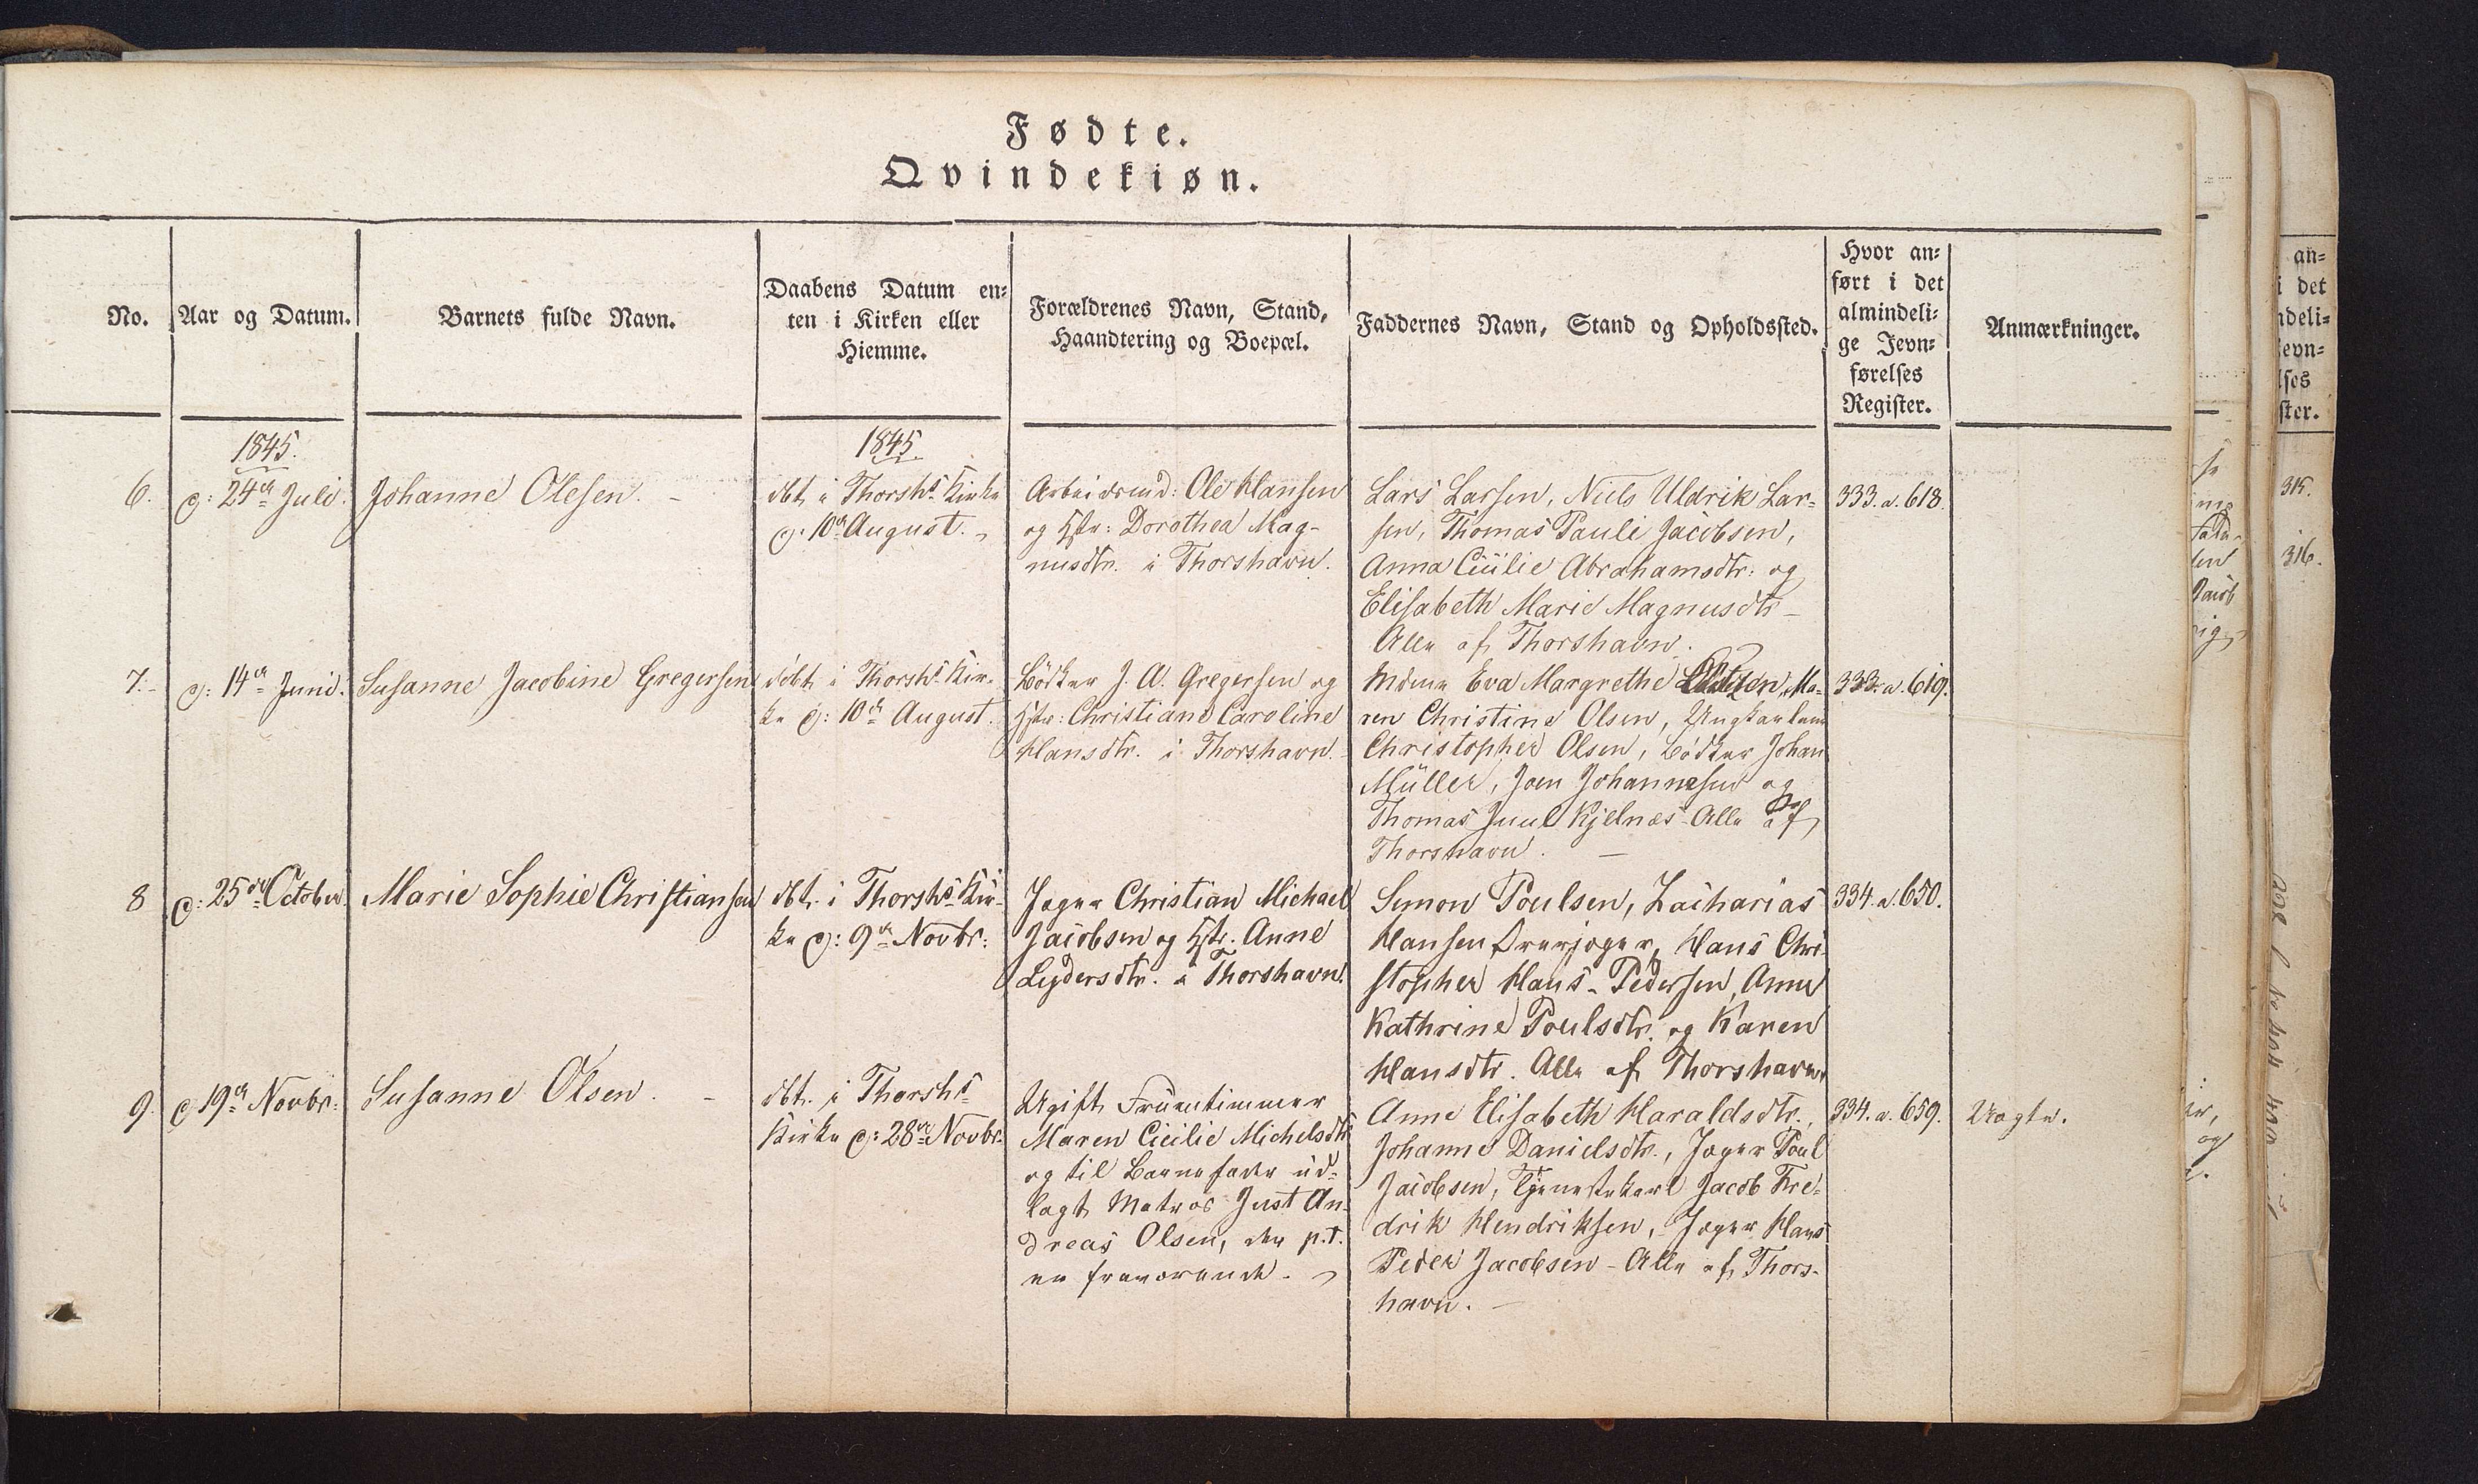 Fødte.
Qvindekiøn.
No.
Aar og Datum.
Barnets fulde Navn.
Daabens Datum en=
ten i Kirken eller
Hiemme.
Forældrenes Navn, Stand,
Haandtering og Boepæl.
Faddernes Navn, Stand og Opholdssted.
Hvor an=
ført i det
almindeli=
ge Jevn=
førelses
Register.
Anmærkninger.
6.
1845.
d: 24de Juli.
Johanne Olesen. -
1845.
dbt. i Thorshs Kirke
d: 10de August.
Arbeidsmd: Ole Hansen
og Hstr: Dorothea Mag-
nusdtr. i Thorshavn.
Lars Larsen, Niels Uldrik Lar=
sen, Thomas Pauli Jacobsen,
Anna Cicilie Abrahamsdtr: og
Elisabeth Marie Magnusdtr -
Alle af Thorshavn.
333. a. 618.
7.-
d: 14de Juni.
Susanne Jacobine Gregersen
döbt i Thorshs Kir-
ke d: 10de August.
Bödker J. A. Gregersen og
Hstr: Christiane Caroline
Hansdtr. i Thorshavn.
Mdme Eva Margrethe Ma-
ren Christine Olsen, Ungkarlene
Christopher Olsen, Bödker Johan
Müller, Joen Johannesen og
Thomas Juul Kjelnæs - Alle af
Thorshavn. -
333. a. 619.
8
d: 25de October.
Marie Sophie Christiansen
dbt. i Thorshs Kir-
ke d: 9de Novbr:
Jæger Christian Michael
Jacobsen og Hstr. Anne
Leydersdtr. i Thorshavn.
Simon Poulsen, Zacharias
Hansen Overjæger, Hans Chri-
stopher Hans-Pedersen, Anne
Kathrine Poulsdtr. og Karen
Hansdtr. Alle af Thorshavn.
334. a. 650.
9.
d 19de Novbr:
Susanne Olsen. -
dbt. i Thorshs
Kirke d: 28de Novbr.
Ugift Fruentimmer
Maren Cicilie Michelsdtr
og til Barnefader ud-
lagt Matros Just An-
dreas Olsen, der p.t.
er fraværende.
Anne Elisabeth Haraldsdtr.,
Johanne Danielsdtr., Jæger Poul
Jacobsen, Tjenestekarl Jacob Fre-
drik Hendriksen, Jæger Hans
Peder Jacobsen - Alle af Thors-
havn. -
334. a. 659.
Uægte.
an=
i det
ndeli=
evn=
lses
ster.
315.
316.